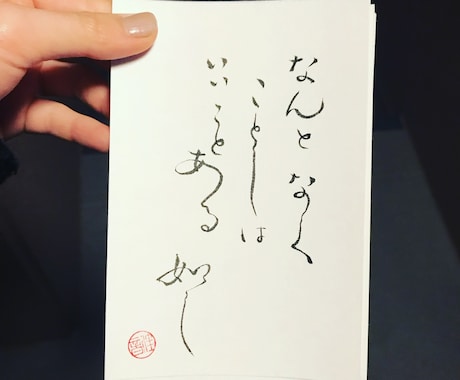 なんとなく
ことしは
いいことある
如し